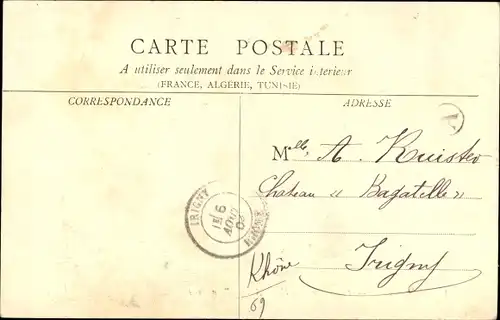 CARTE POSTALE
A utiliser seulement dans le Service intérieur
(FRANCE, ALGÉRIE, TUNISIE)
CORRESPONDANCE
ADRESSE
A
Mlle A. Kuister
Chateau « Bagatelle »
Irigny
Rhône
69
IRIGNY
6
AOUT
RHONE